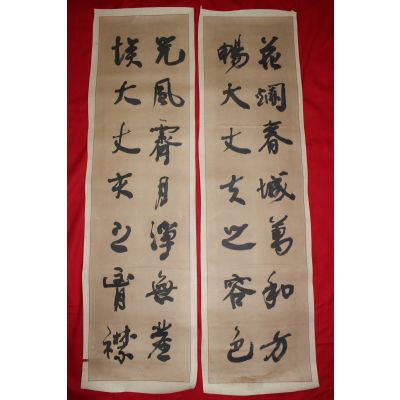 花爛春城萬和方
暢大丈夫之容色
光風霽月淨無塵
埃大丈夫之胸襟